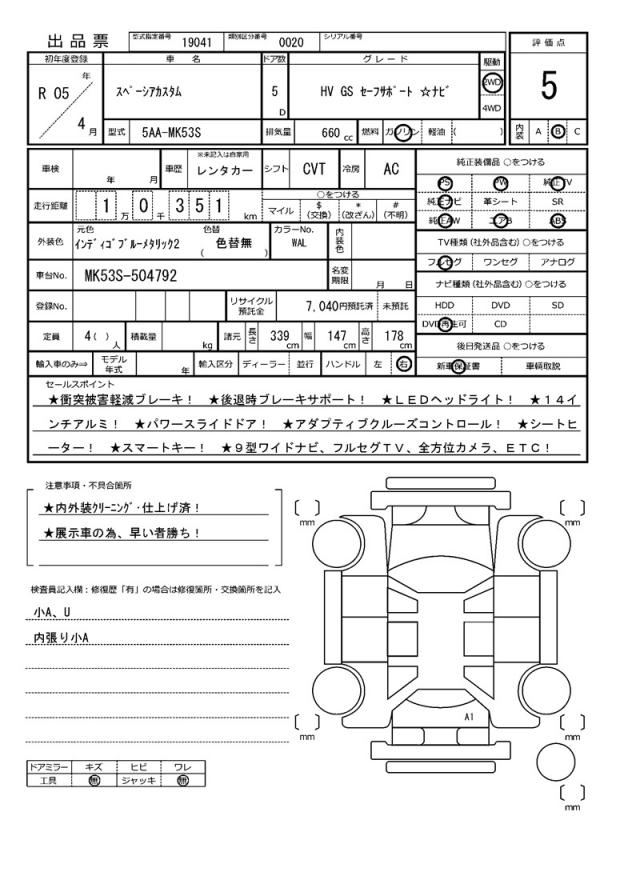 出品票 型式指定番号 19041 類別区分番号 0020 シリアル番号
評価点
5
内装 A B C
初年度登録 車名 ドア数 グレード 駆動
R 05 年 4 月 スペーシアカスタム 5 D HV GS セーフサポート ☆ナビ 2WD 4WD
型式 5AA-MK53S 排気量 660 cc 燃料 ガソリン 軽油 ( )
車検 年 月 車歴 ※未記入は自家用 レンタカー シフト CVT 冷房 AC
走行距離 1 万 0 千 3 5 1 km ○をつける マイル $ (交換) * (改ざん) # (不明)
外装色 元色 インディゴブルーメタリック2 色替 ( 色替無 ) カラーNo. WAL 内装色
車台No. MK53S-504792 名変期限 月 日
登録No. リサイクル預託金 7,040円預託済 未預託
定員 4( ) 人 積載量 kg 諸元 長さ 339 cm 幅 147 cm 高さ 178 cm
輸入車のみ⇒ モデル年式 年 輸入区分 ディーラー 並行 ハンドル 左 右
純正装備品 ○をつける
PS PW 純正TV
純正ナビ 革シート SR
純正AW エアB ABS
TV種類(社外品含む) ○をつける
フルセグ ワンセグ アナログ
ナビ種類(社外品含む) ○をつける
HDD DVD SD
DVD再生可 CD
後日発送品 ○をつける
新車保証書 車輌取説
セールスポイント
★衝突被害軽減ブレーキ! ★後退時ブレーキサポート! ★LEDヘッドライト! ★14イ
ンチアルミ! ★パワースライドドア! ★アダプティブクルーズコントロール! ★シートヒ
ーター! ★スマートキー! ★9型ワイドナビ、フルセグTV、全方位カメラ、ETC!
注意事項・不具合箇所
★内外装クリーニング・仕上げ済!
★展示車の為、早い者勝ち!
検査員記入欄:修復歴「有」の場合は修復箇所・交換箇所を記入
小A、U
内張り小A
ドアミラー キズ ヒビ ワレ
工具 無 ジャッキ 無
[ ] mm
[ ] mm
A1
[ ] mm
[ ] mm
[ ] mm